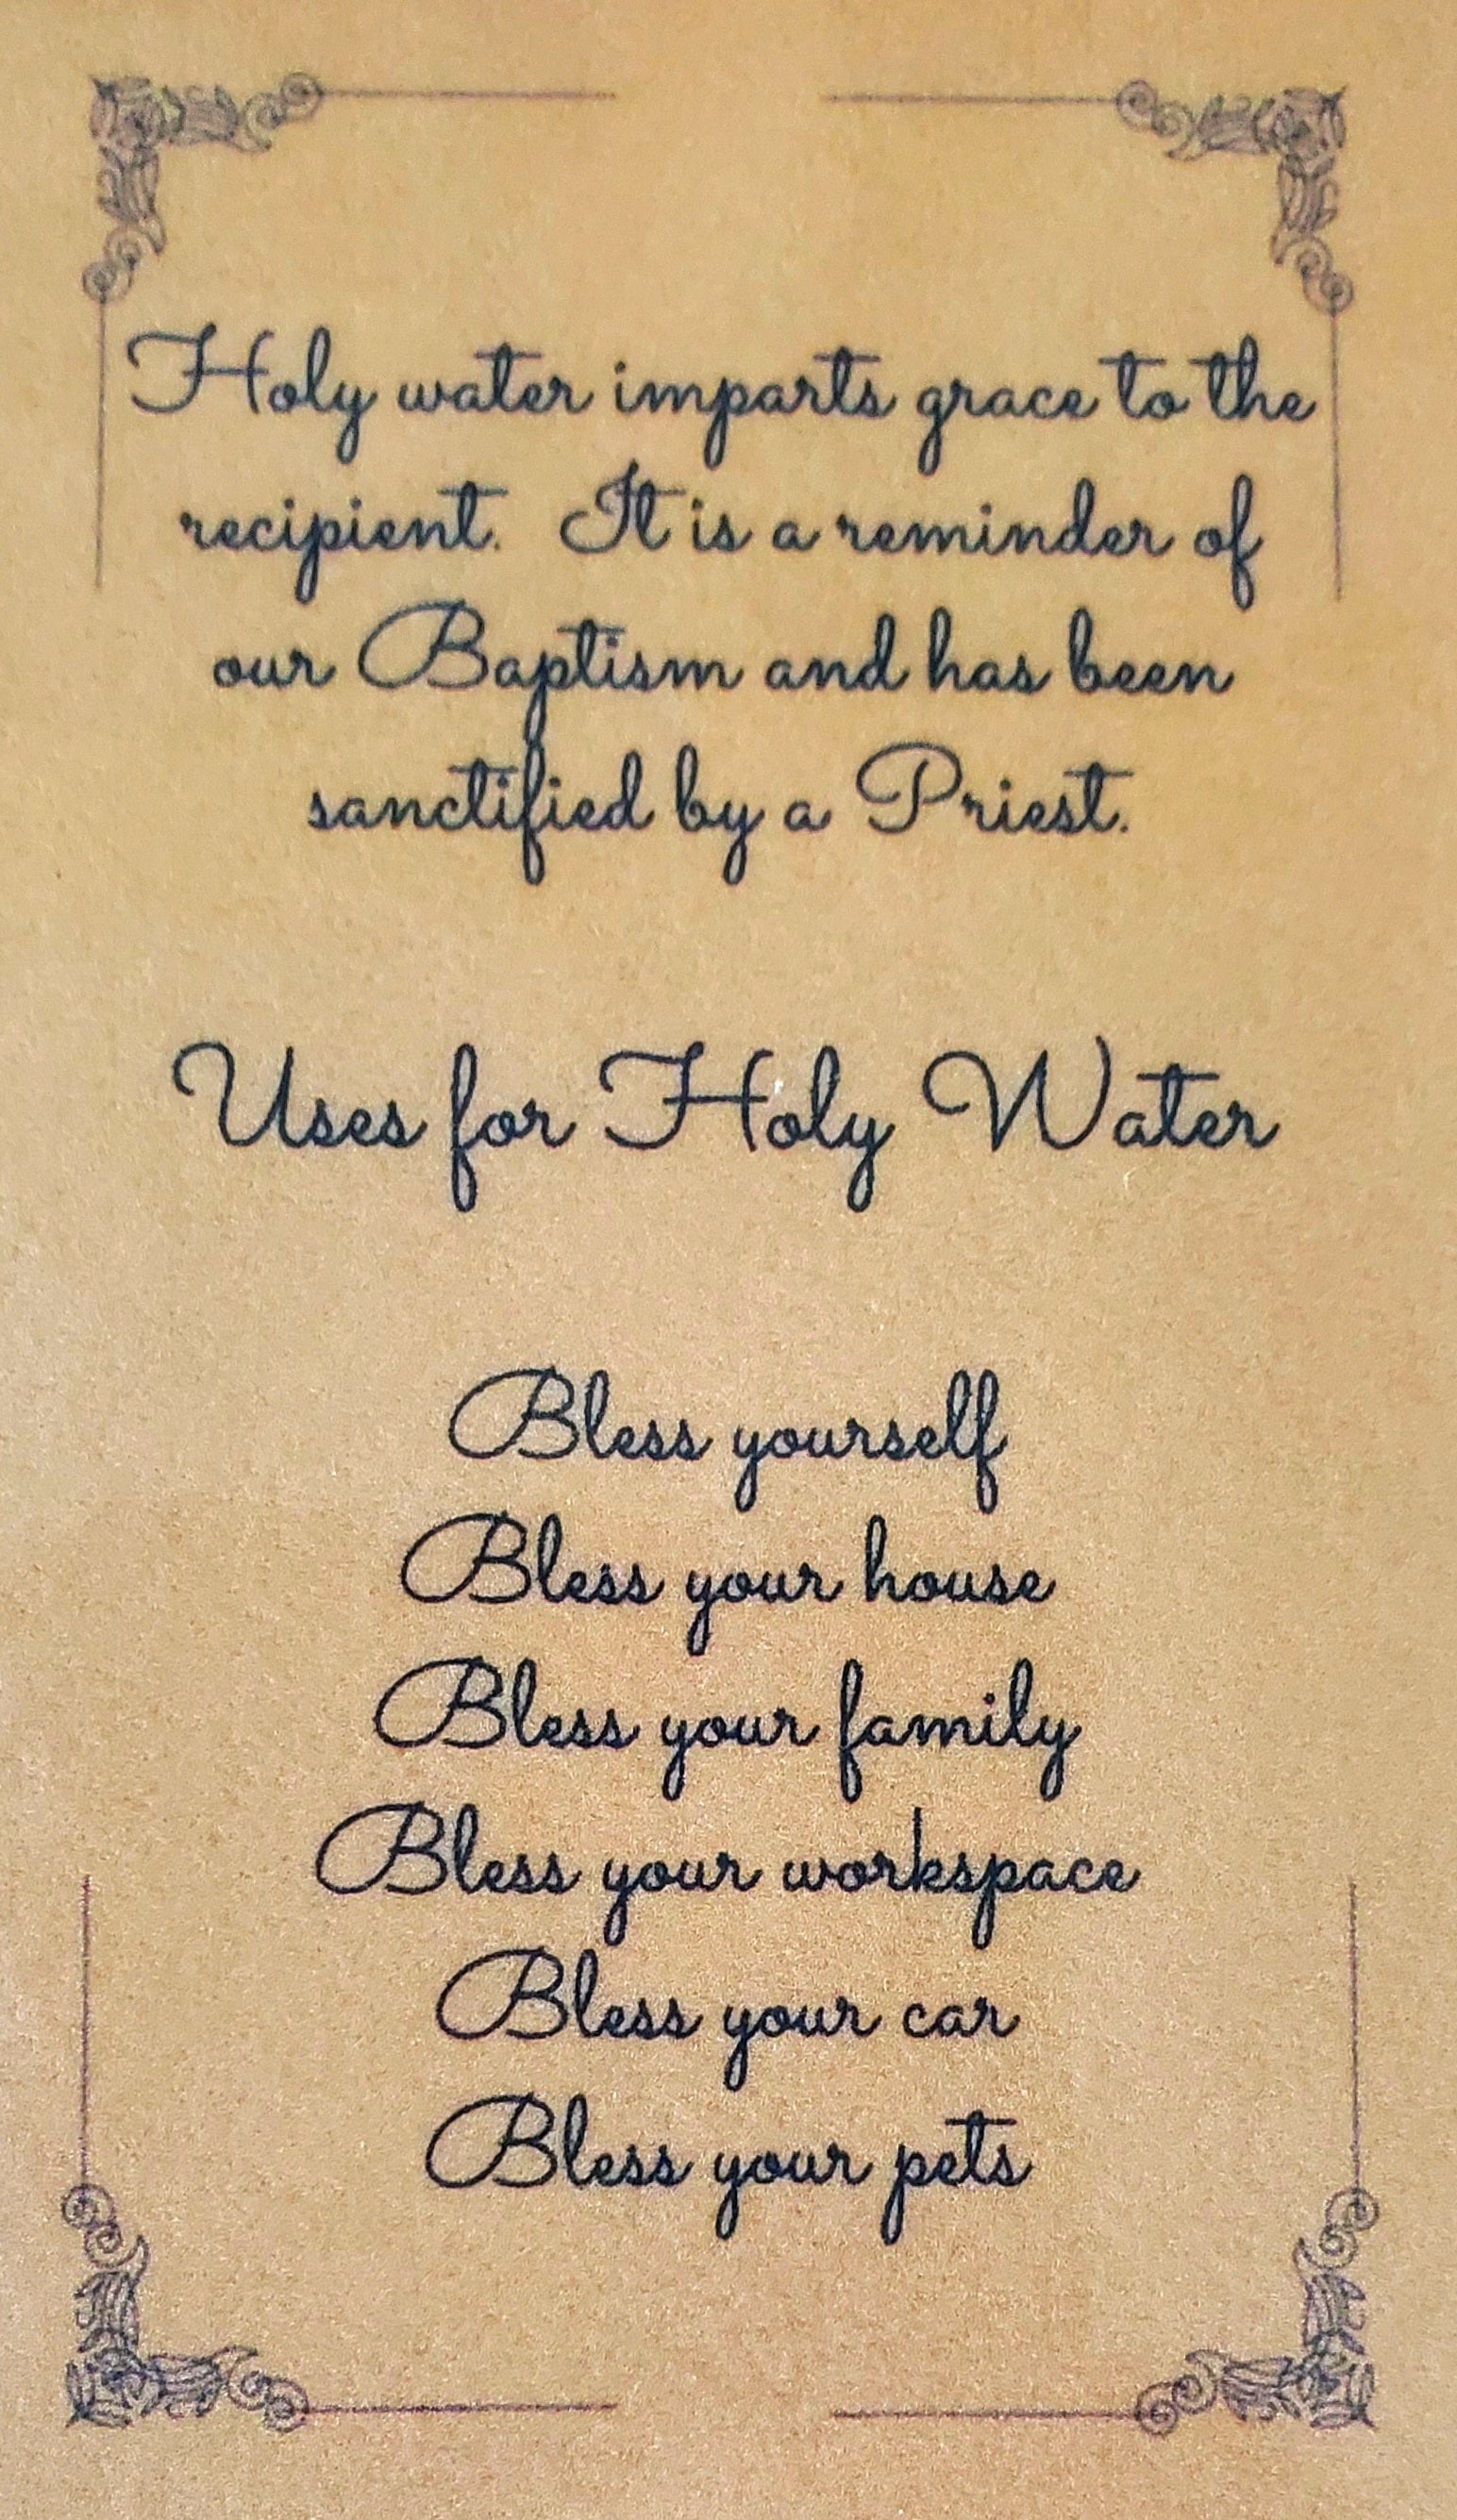 Holy water imparts grace to the
recipient. It is a reminder of
our Baptism and has been
sanctified by a Priest.
Uses for Holy Water
Bless yourself
Bless your house
Bless your family
Bless your workspace
Bless your car
Bless your pets